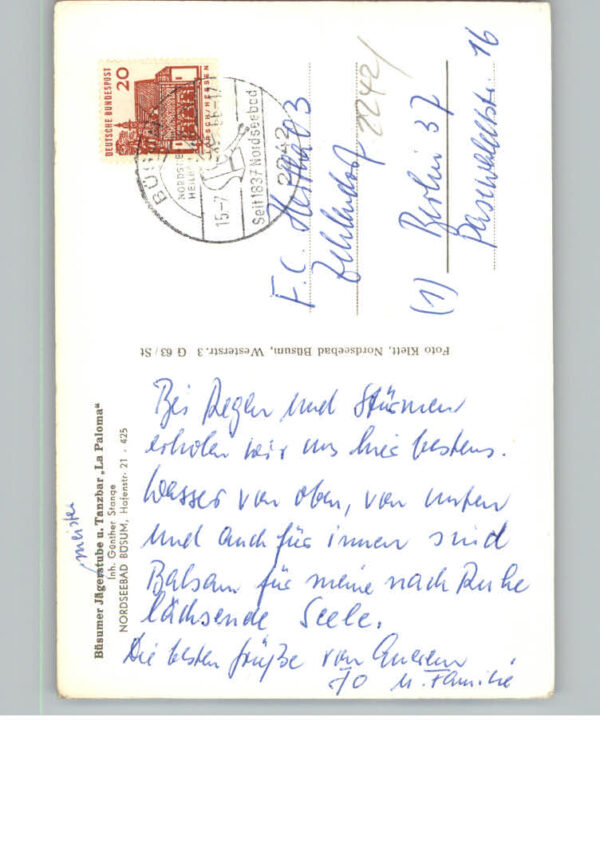 DEUTSCHE BUNDESPOST
20
LORSCH/HESSEN
BÜS
NORDSEE
HEIL
15.-7
Seit 1837 Nordseebad
2242
2242/
F.C. Hertha 03
Zehlendorf
(1) Berlin 37
Paschwaldstr. 16
Foto Klett, Nordseebad Büsum, Westerstr. 3 G 63/St
meister
Büsumer Jägerstube u. Tanzbar „La Paloma"
Inh. Günther Stange
NORDSEEBAD BÜSUM, Hafenstr. 21 - 425
Bei Regen und Stürmen
erholen wir uns hier bestens.
Wasser von oben, von unten
und auch für innen sind
Balsam für meine nach Ruhe
lächsende Seele.
Die besten Grüße von Euerem
Jo u. Familie